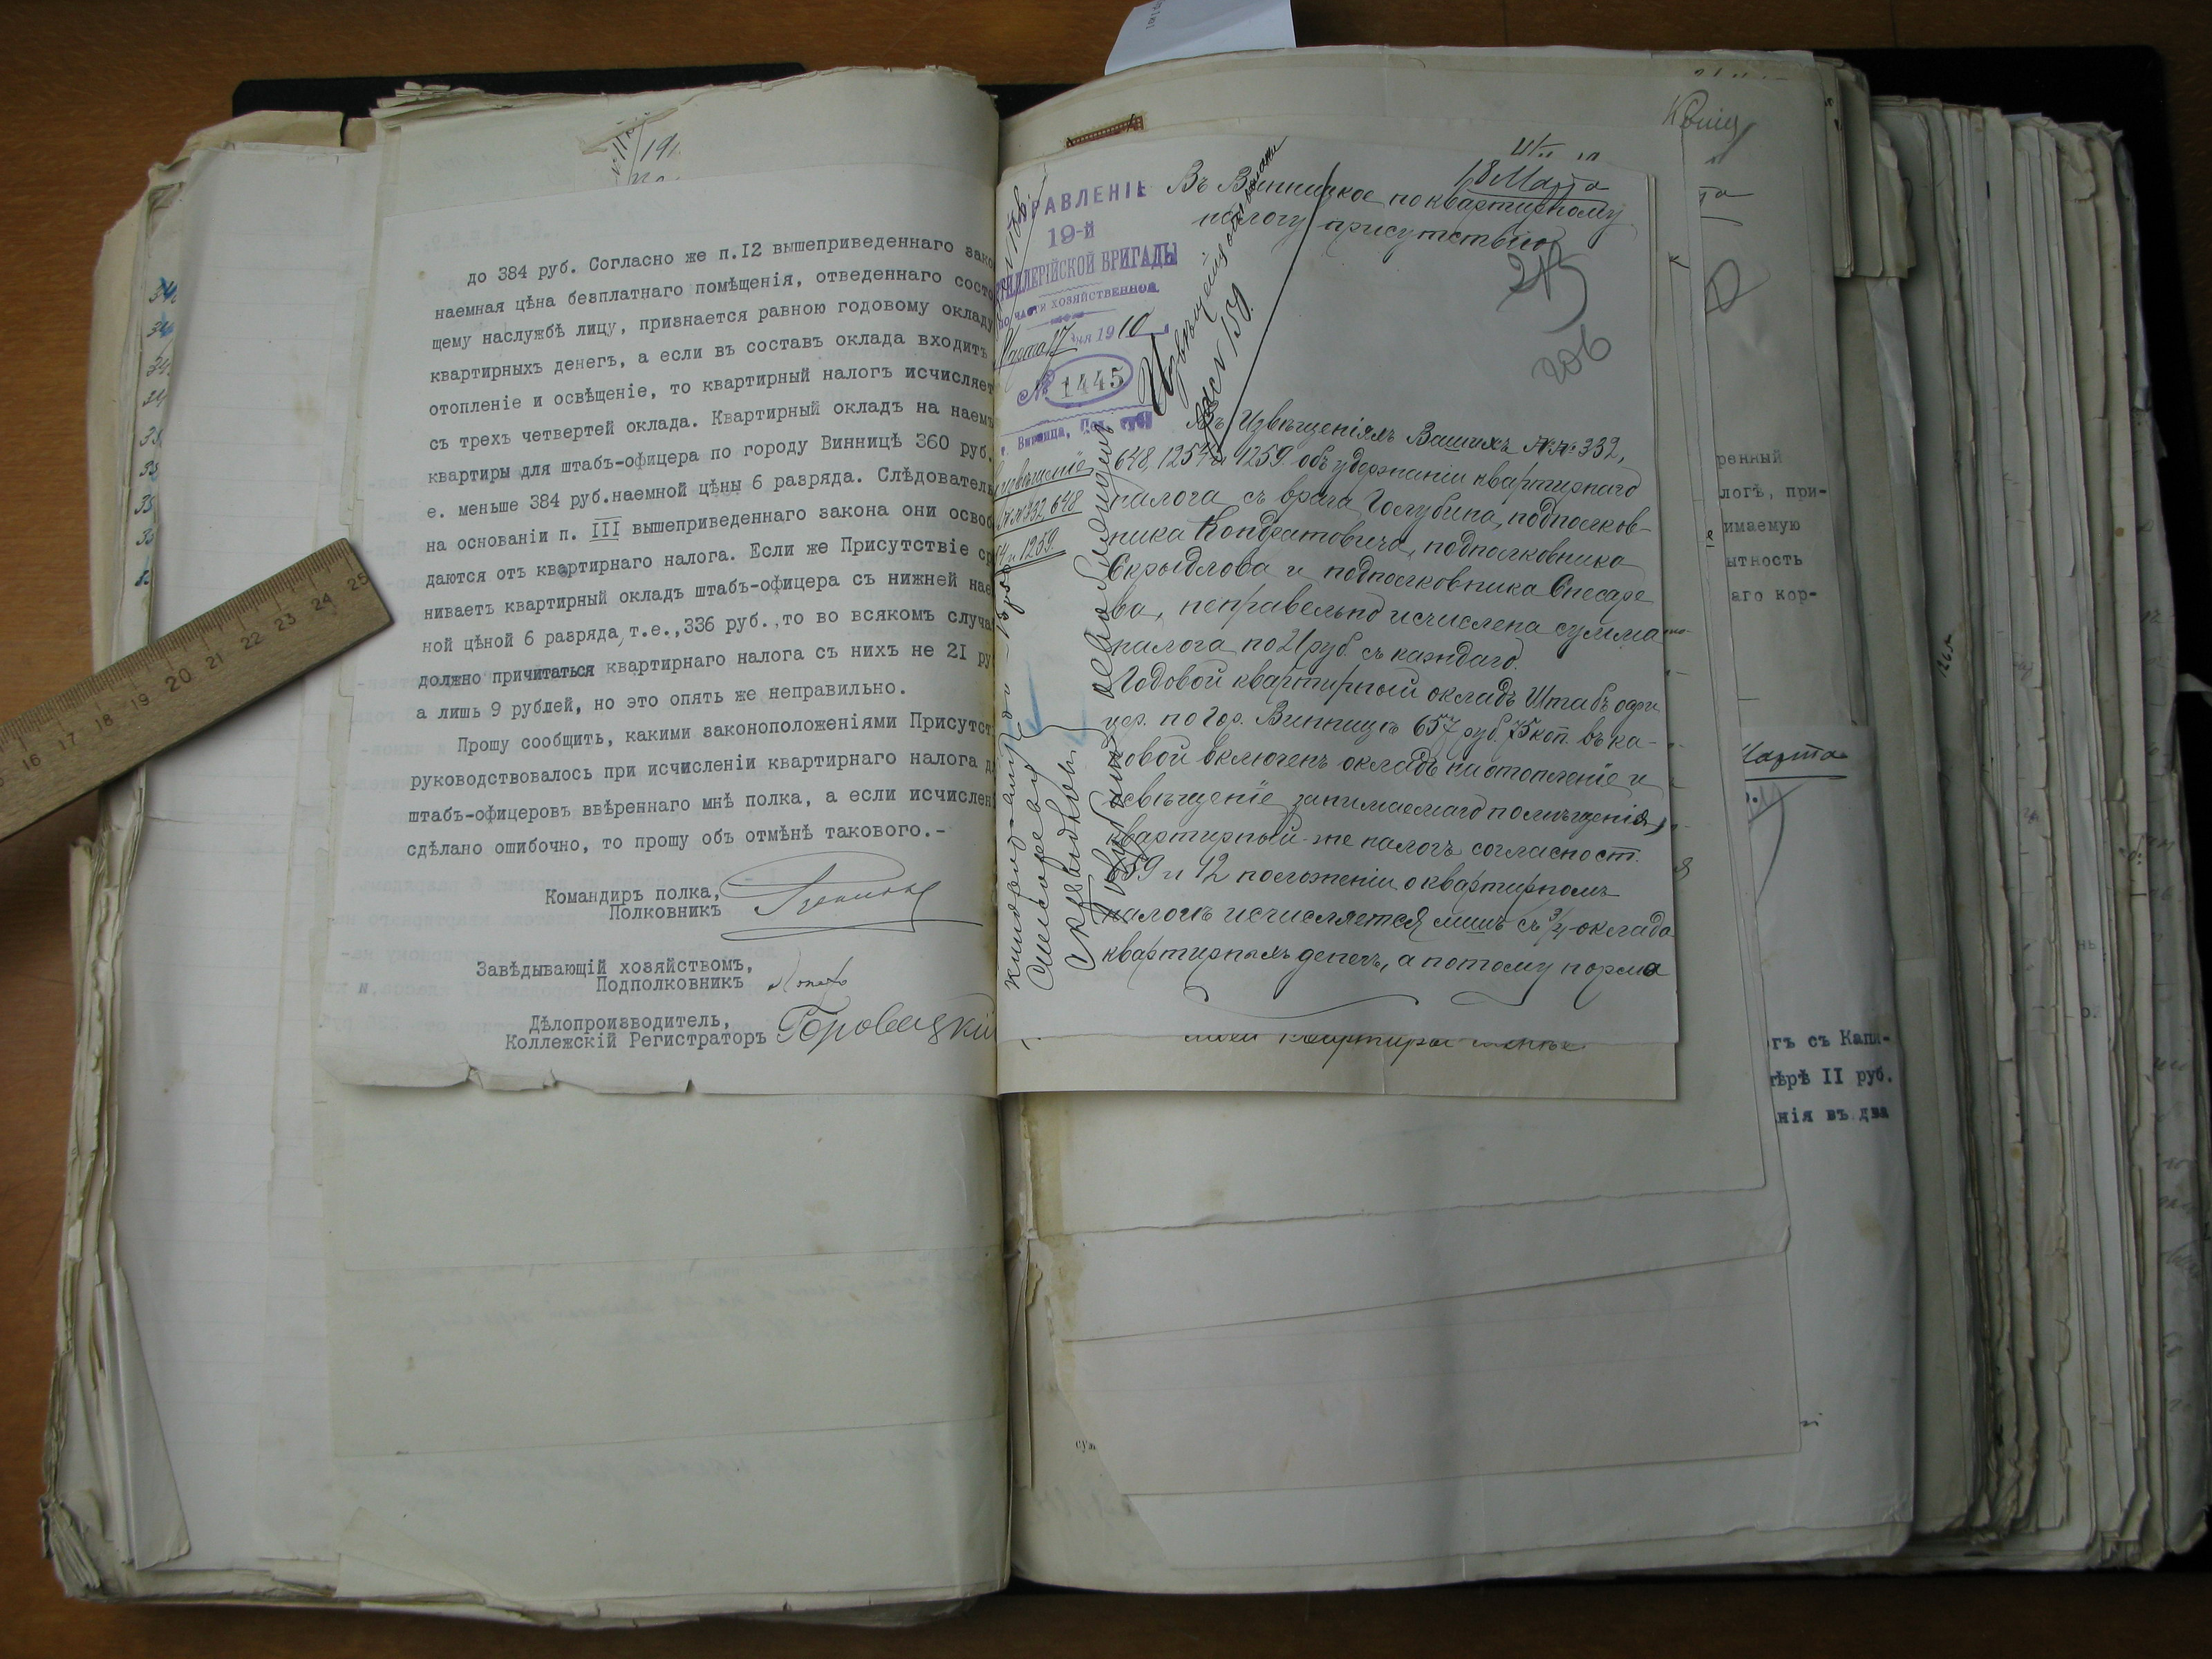 до 384 руб. Согласно же п.I2 вышеприведеннаго зако
наемная цѣна безплатнаго помѣщенія, отведеннаго состо
щему наслужбѣ лицу, признается равною годовому окладу
квартирныхъ денегъ, а если въ составъ оклада входитъ
отопленіе и освѣщеніе, то квартирный налогъ исчисляет
съ трехъ четвертей оклада. Квартирный окладъ на наем
квартиры для штабъ-офицера по городу Винницѣ 360 руб.
е. меньше 384 руб.наемной цѣны 6 разряда. Слѣдователь
на основаніи п. III вышеприведеннаго закона они освоб
даются отъ квартирнаго налога. Если же Присутствіе ср
ниваетъ квартирный окладъ штабъ-офицера съ нижней нае
ной цѣной 6 разряда,т.е.,336 руб.,то во всякомъ случа
должно причитаться квартирнаго налога съ нихъ не 2I ру
а лишь 9 рублей, но это опять же неправильно.
Прошу сообщить, какими законоположеніями Присутст
руководствовалось при исчисленіи квартирнаго налога д
штабъ-офицеровъ ввѣреннаго мнѣ полка, а если исчислен
сдѣлано ошибочно, то прошу объ отмѣнѣ такового.-
Командиръ полка,
Полковникъ
Завѣдывающій хозяйствомъ,
Подполковникъ
Дѣлопроизводитель,
Коллежскій Регистраторъ Боровацкій
РАВЛЕНІЕ
19-й
ТИЛЛЕРІЙСКОЙ БРИГАДЫ
по части хозяйственной
Марта 17 дня 1910
№ 1445
Винница, Под. губ
18 Марта
Въ Винницкое по квартирному
налогу присутствіе
215
206
Извѣщеніе
№№ 332 648
и 1259.
Въ Извѣщеніяхъ Вашихъ №№ 332,
648, 1254 и 1259. объ удержаніи квартирнаго
налога съ врача Голубина, подполков-
ника Кондратовича, подполковника
Скрыдлова и подполковника Снесаре
ва, неправельно исчислена сумма
налога по 21 руб. съ каждаго.
Годовой квартирный окладъ Штабъ офи
цер. по гор. Винницѣ 657 руб. 75 коп. въ ка-
ковой включенъ окладъ на отопленіе и
освѣщеніе занимаемаго помѣщенія,
квартирный-же налогъ согласно ст.
59 и 12 положеніи о квартирномъ
налогѣ исчисляется лишь съ 3/4 оклада
квартирныхъ денегъ, а потому норма
ренный
логѣ, при-
имаемую
ытность
аго кор-
Марта
гъ съ Капи-
ѣрѣ II руб.
нія въ два
16 17 18 19 20 21 22 23 24 25